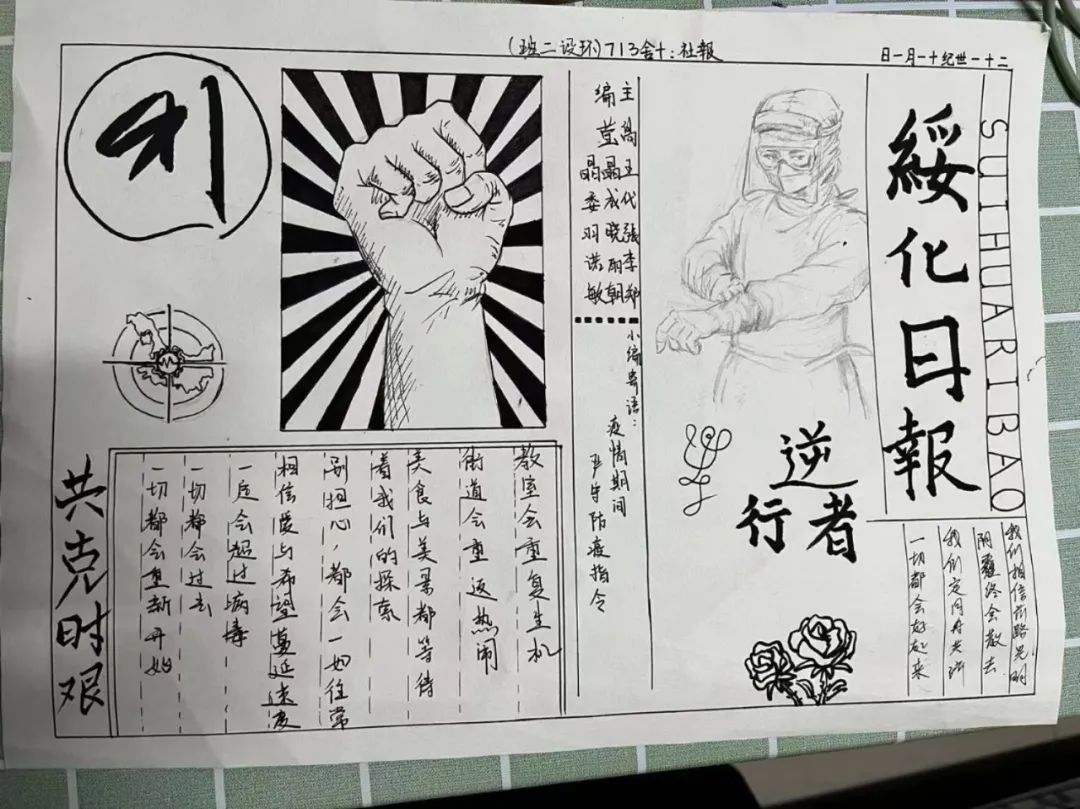 二十一世纪十一月一日
報社:十舍713(环设二班)
SUIHUA RI BAO
綏化日報
我们相信前路光明
阴霾终会散去
我们定同舟共济
一切都会好起来
逆
行者
主编
王晶晶
張晓羽
郑朝敏
小编寄语：
疫情期间
严守防疫指令
教室会重复生机
街道会重返热闹
美食与美景都等待
着我们的探索
别担心，都会一如往常
相信爱与希望蔓延速度
一定会超过病毒
一切都会过去
一切都会重新开始
共克时艰